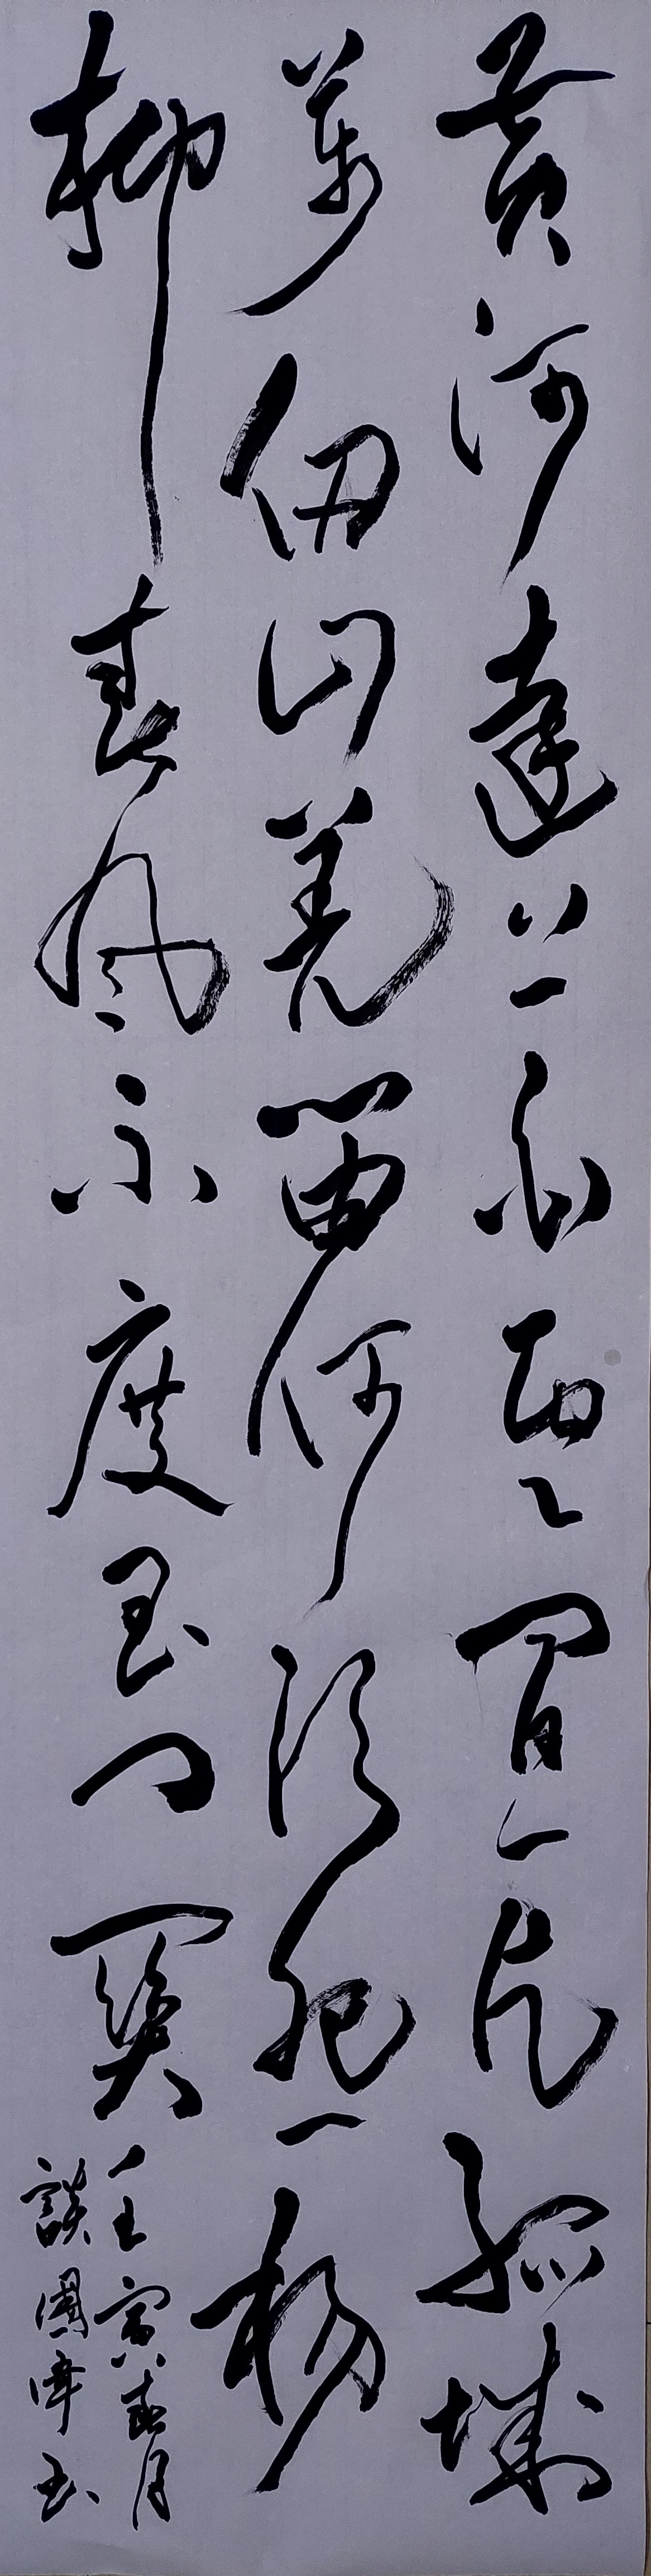 黄河遠上白雲間一片孤城
萬仞山羌笛何須怨楊
柳春風不度玉門關
壬寅春月
談國書